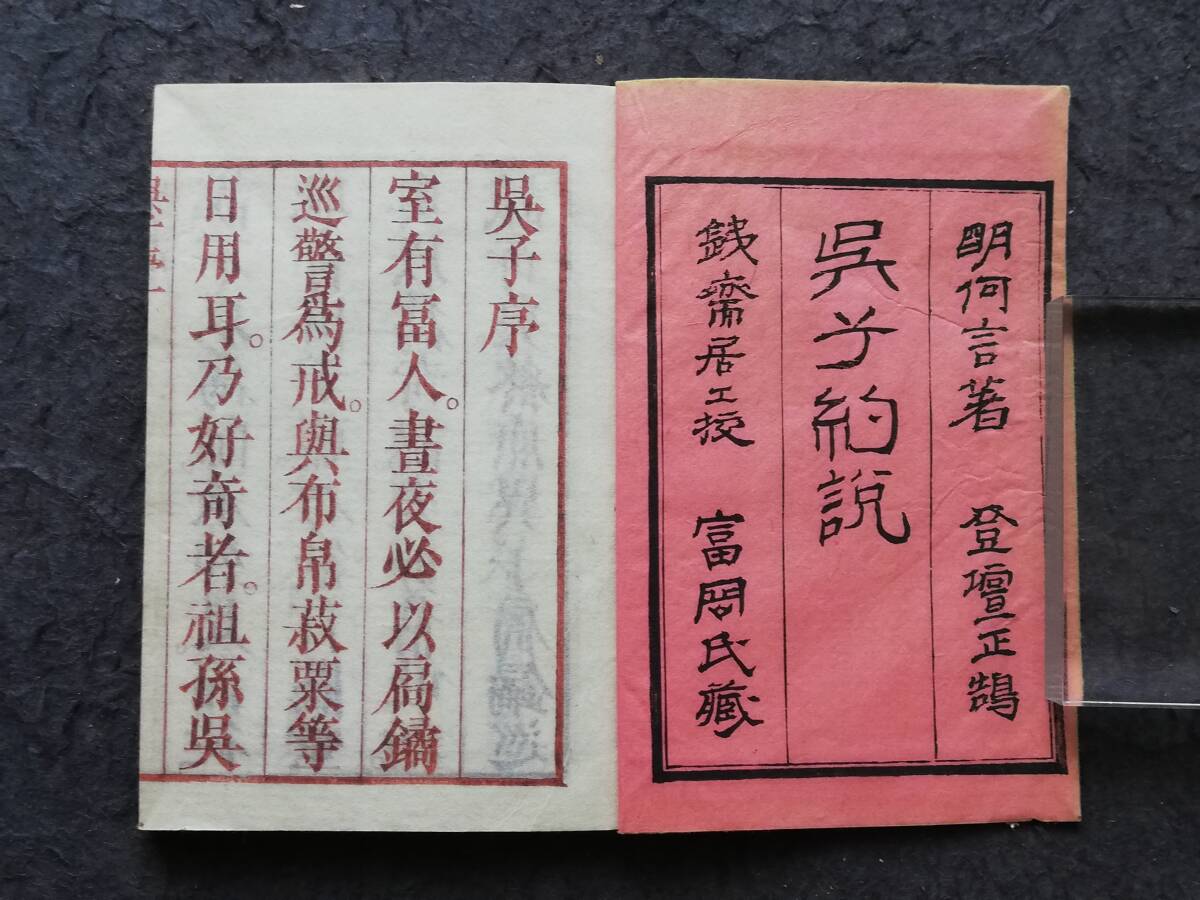 明何言著 登壇正鵠
吳子約說
銕齋居士校 富岡氏藏
吳子序
室有冨人。晝夜必以扃鐍
巡警爲戒。與布帛菽粟等
日用耳。乃好奇者。祖孫吳